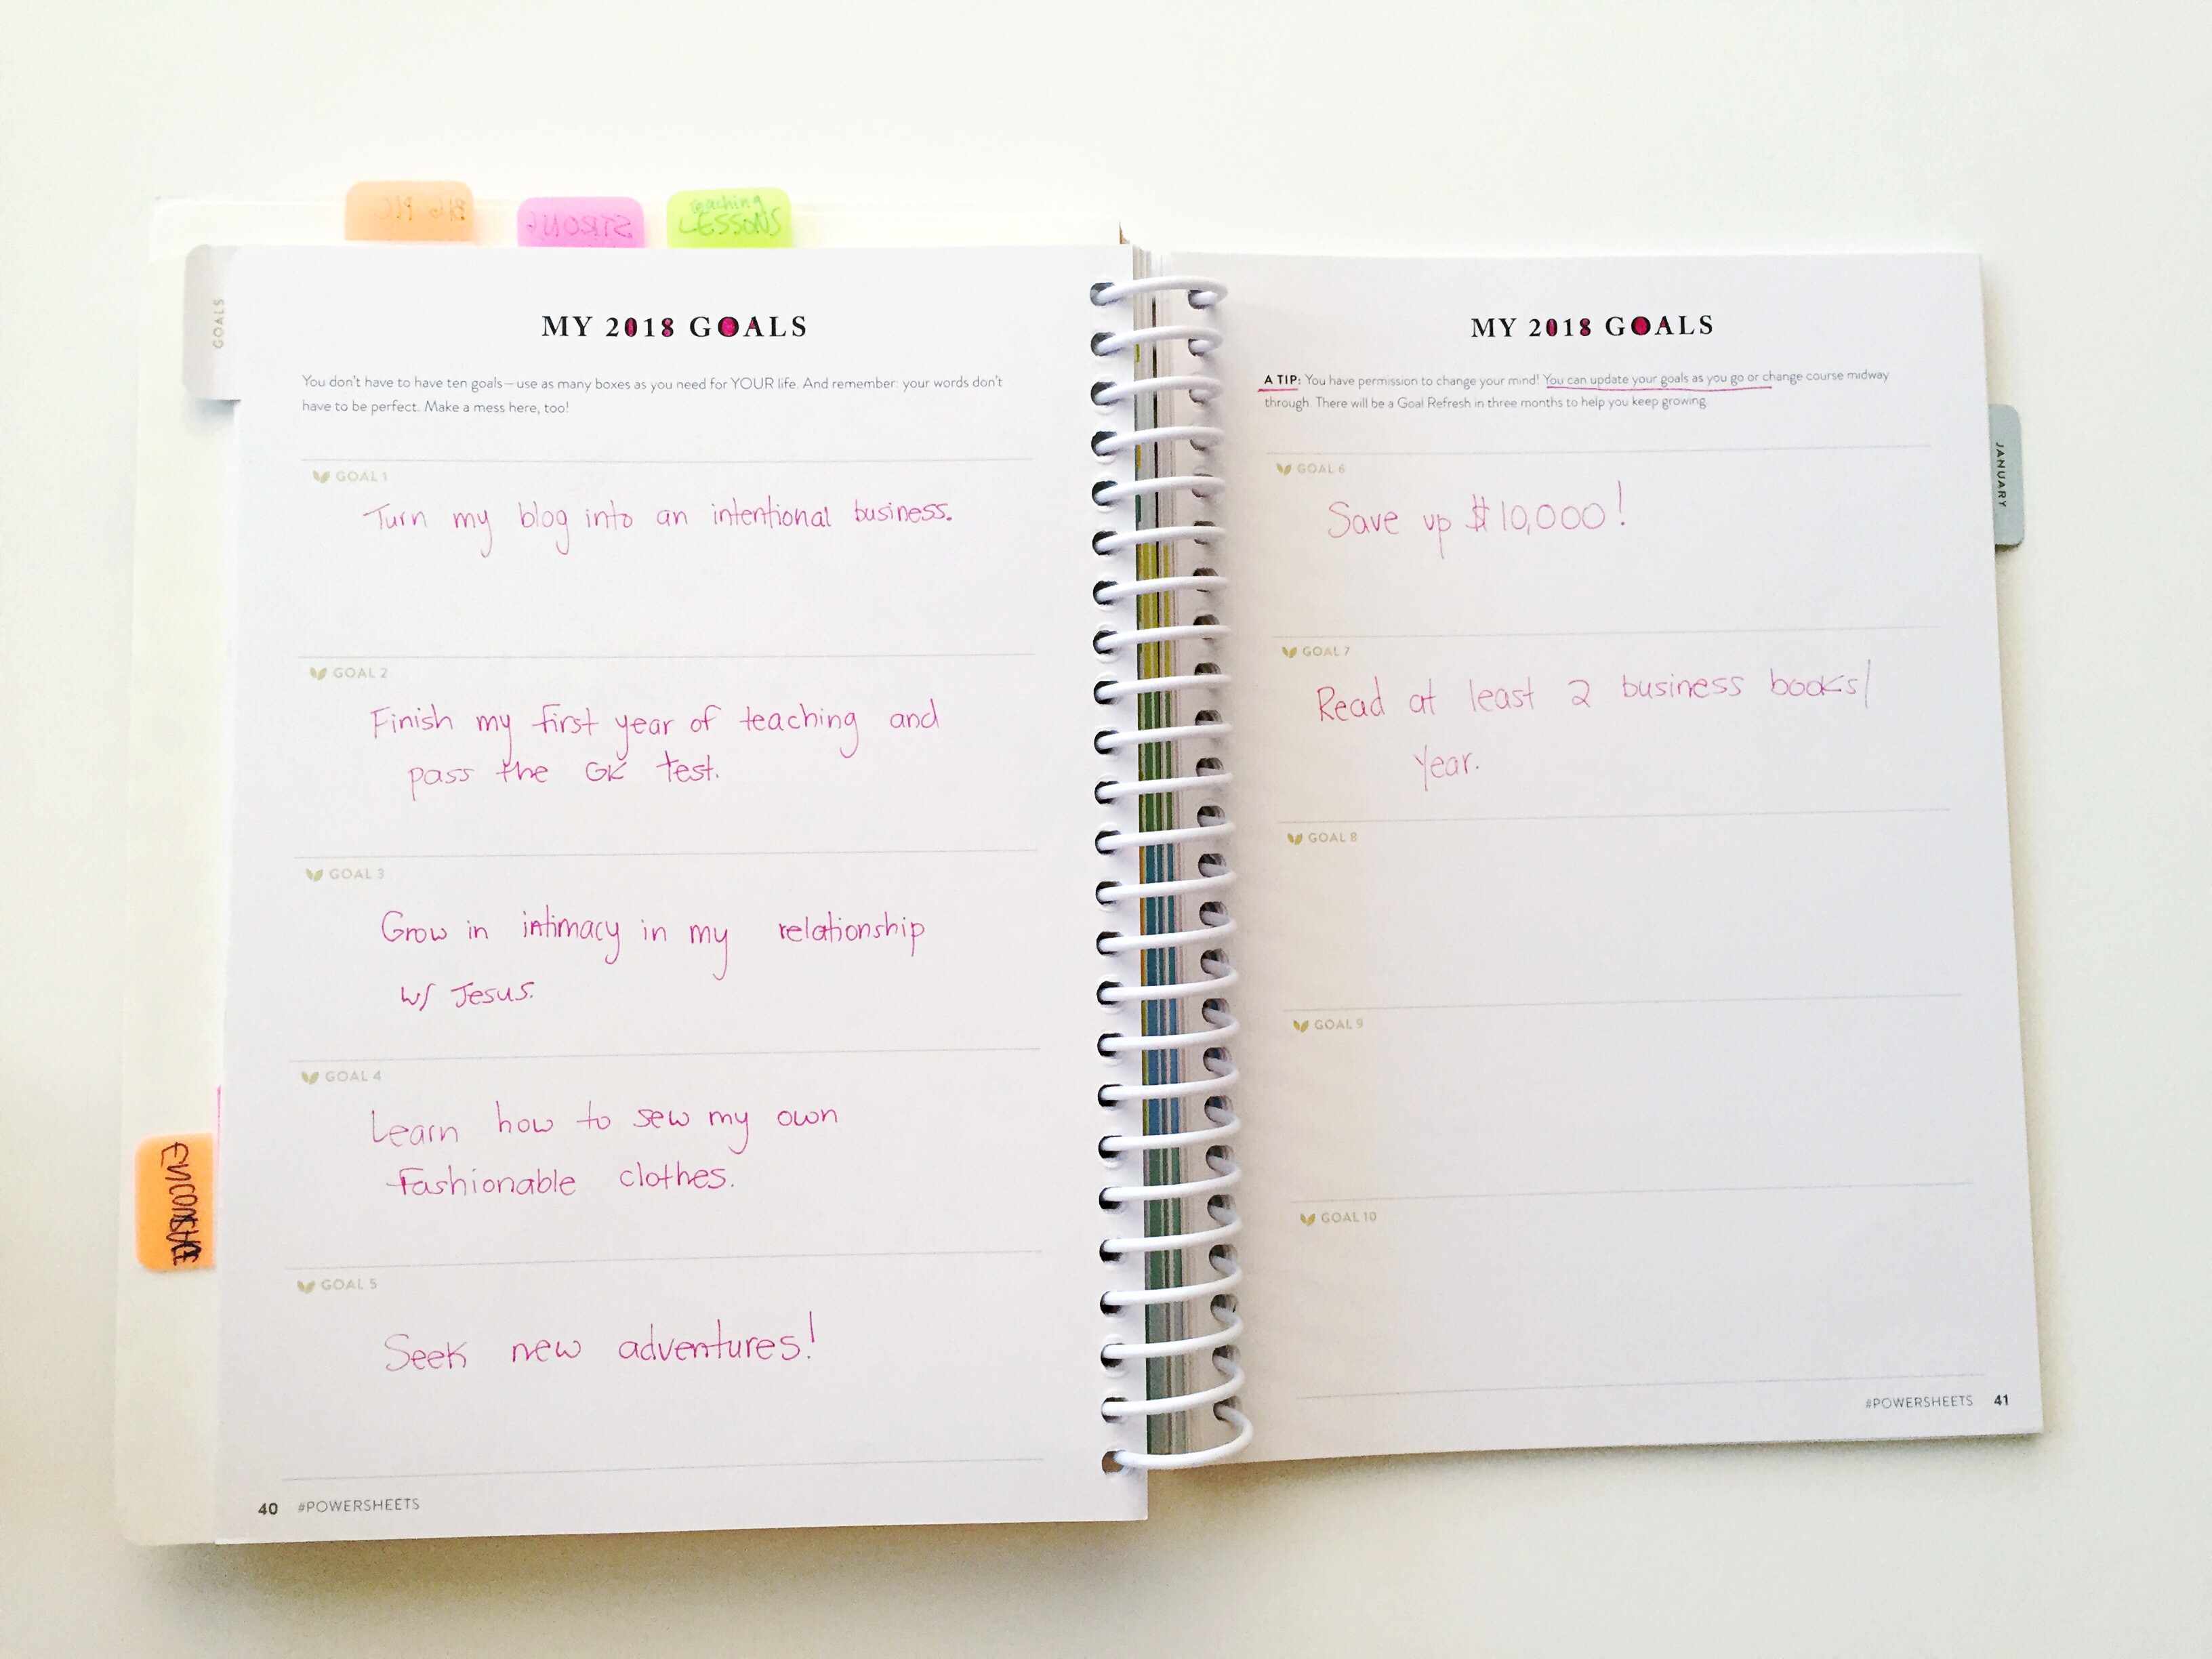 teaching
LESSONS
GOALS
MY 2018 GOALS
You don't have to have ten goals—use as many boxes as you need for YOUR life. And remember: your words don't
have to be perfect. Make a mess here, too!
GOAL 1
Turn my blog into an intentional business.
GOAL 2
Finish my first year of teaching and
pass the GK test.
GOAL 3
Grow in intimacy in my relationship
w/ Jesus.
GOAL 4
Learn how to sew my own
fashionable clothes.
GOAL 5
Seek new adventures!
40 #POWERSHEETS
MY 2018 GOALS
A TIP: You have permission to change your mind! You can update your goals as you go or change course midway
through. There will be a Goal Refresh in three months to help you keep growing.
GOAL 6
Save up $10,000!
GOAL 7
Read at least 2 business books/
year.
GOAL 8
GOAL 9
GOAL 10
#POWERSHEETS 41
JANUARY